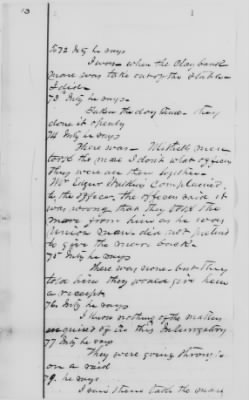 13
To 72 Inty he says
I was when the Clay bank
mare was take out of the stable
I did
73 Inty he says
Taken the day time they
done it openly
74 Inty he says
There was Mitchell men
took the mare I don't what officer
they were all together
Mr complained
to the officer, the officer said it
was wrong that they took the
mare from him as he was
Union man did not pretend
to give the mare back
75 Inty he says
There was none but they
told him they would give him
a receipt
76 Inty he says
I know nothing of the matter
inquired of in this Interrogatory
77 Inty he says
They were going through
on a raid
79 he says
I seen them take the mare